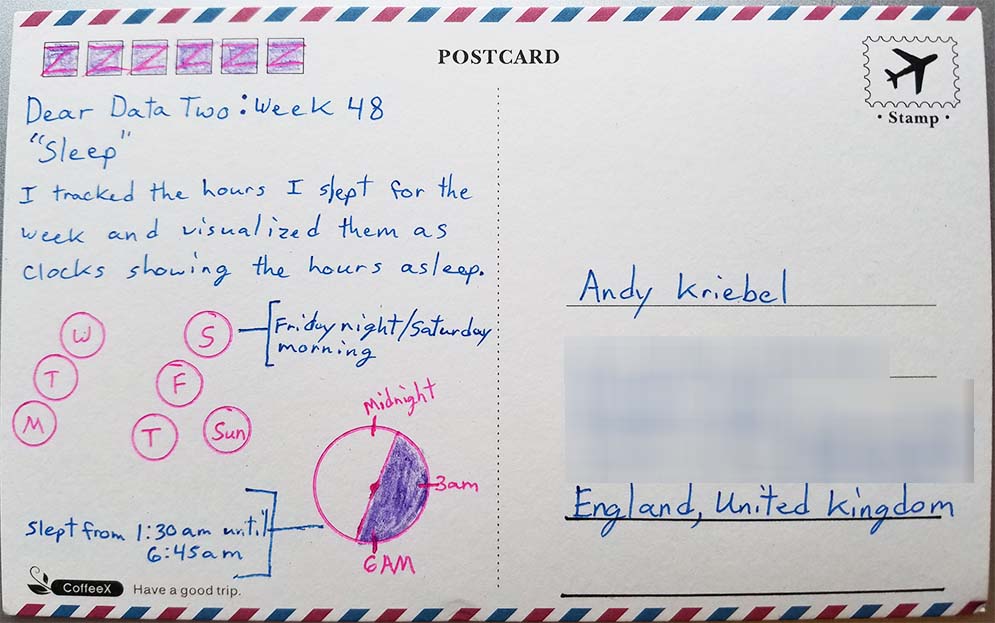 Z Z Z Z Z Z
POSTCARD
• Stamp •
Dear Data Two: Week 48
"Sleep"
I tracked the hours I slept for the
week and visualized them as
clocks showing the hours asleep.
W
T
M
S
F
T
Sun
Friday night/Saturday
morning
Midnight
3am
6AM
Slept from 1:30am until
6:45am
CoffeeX
Have a good trip.
Andy Kriebel
England, United Kingdom